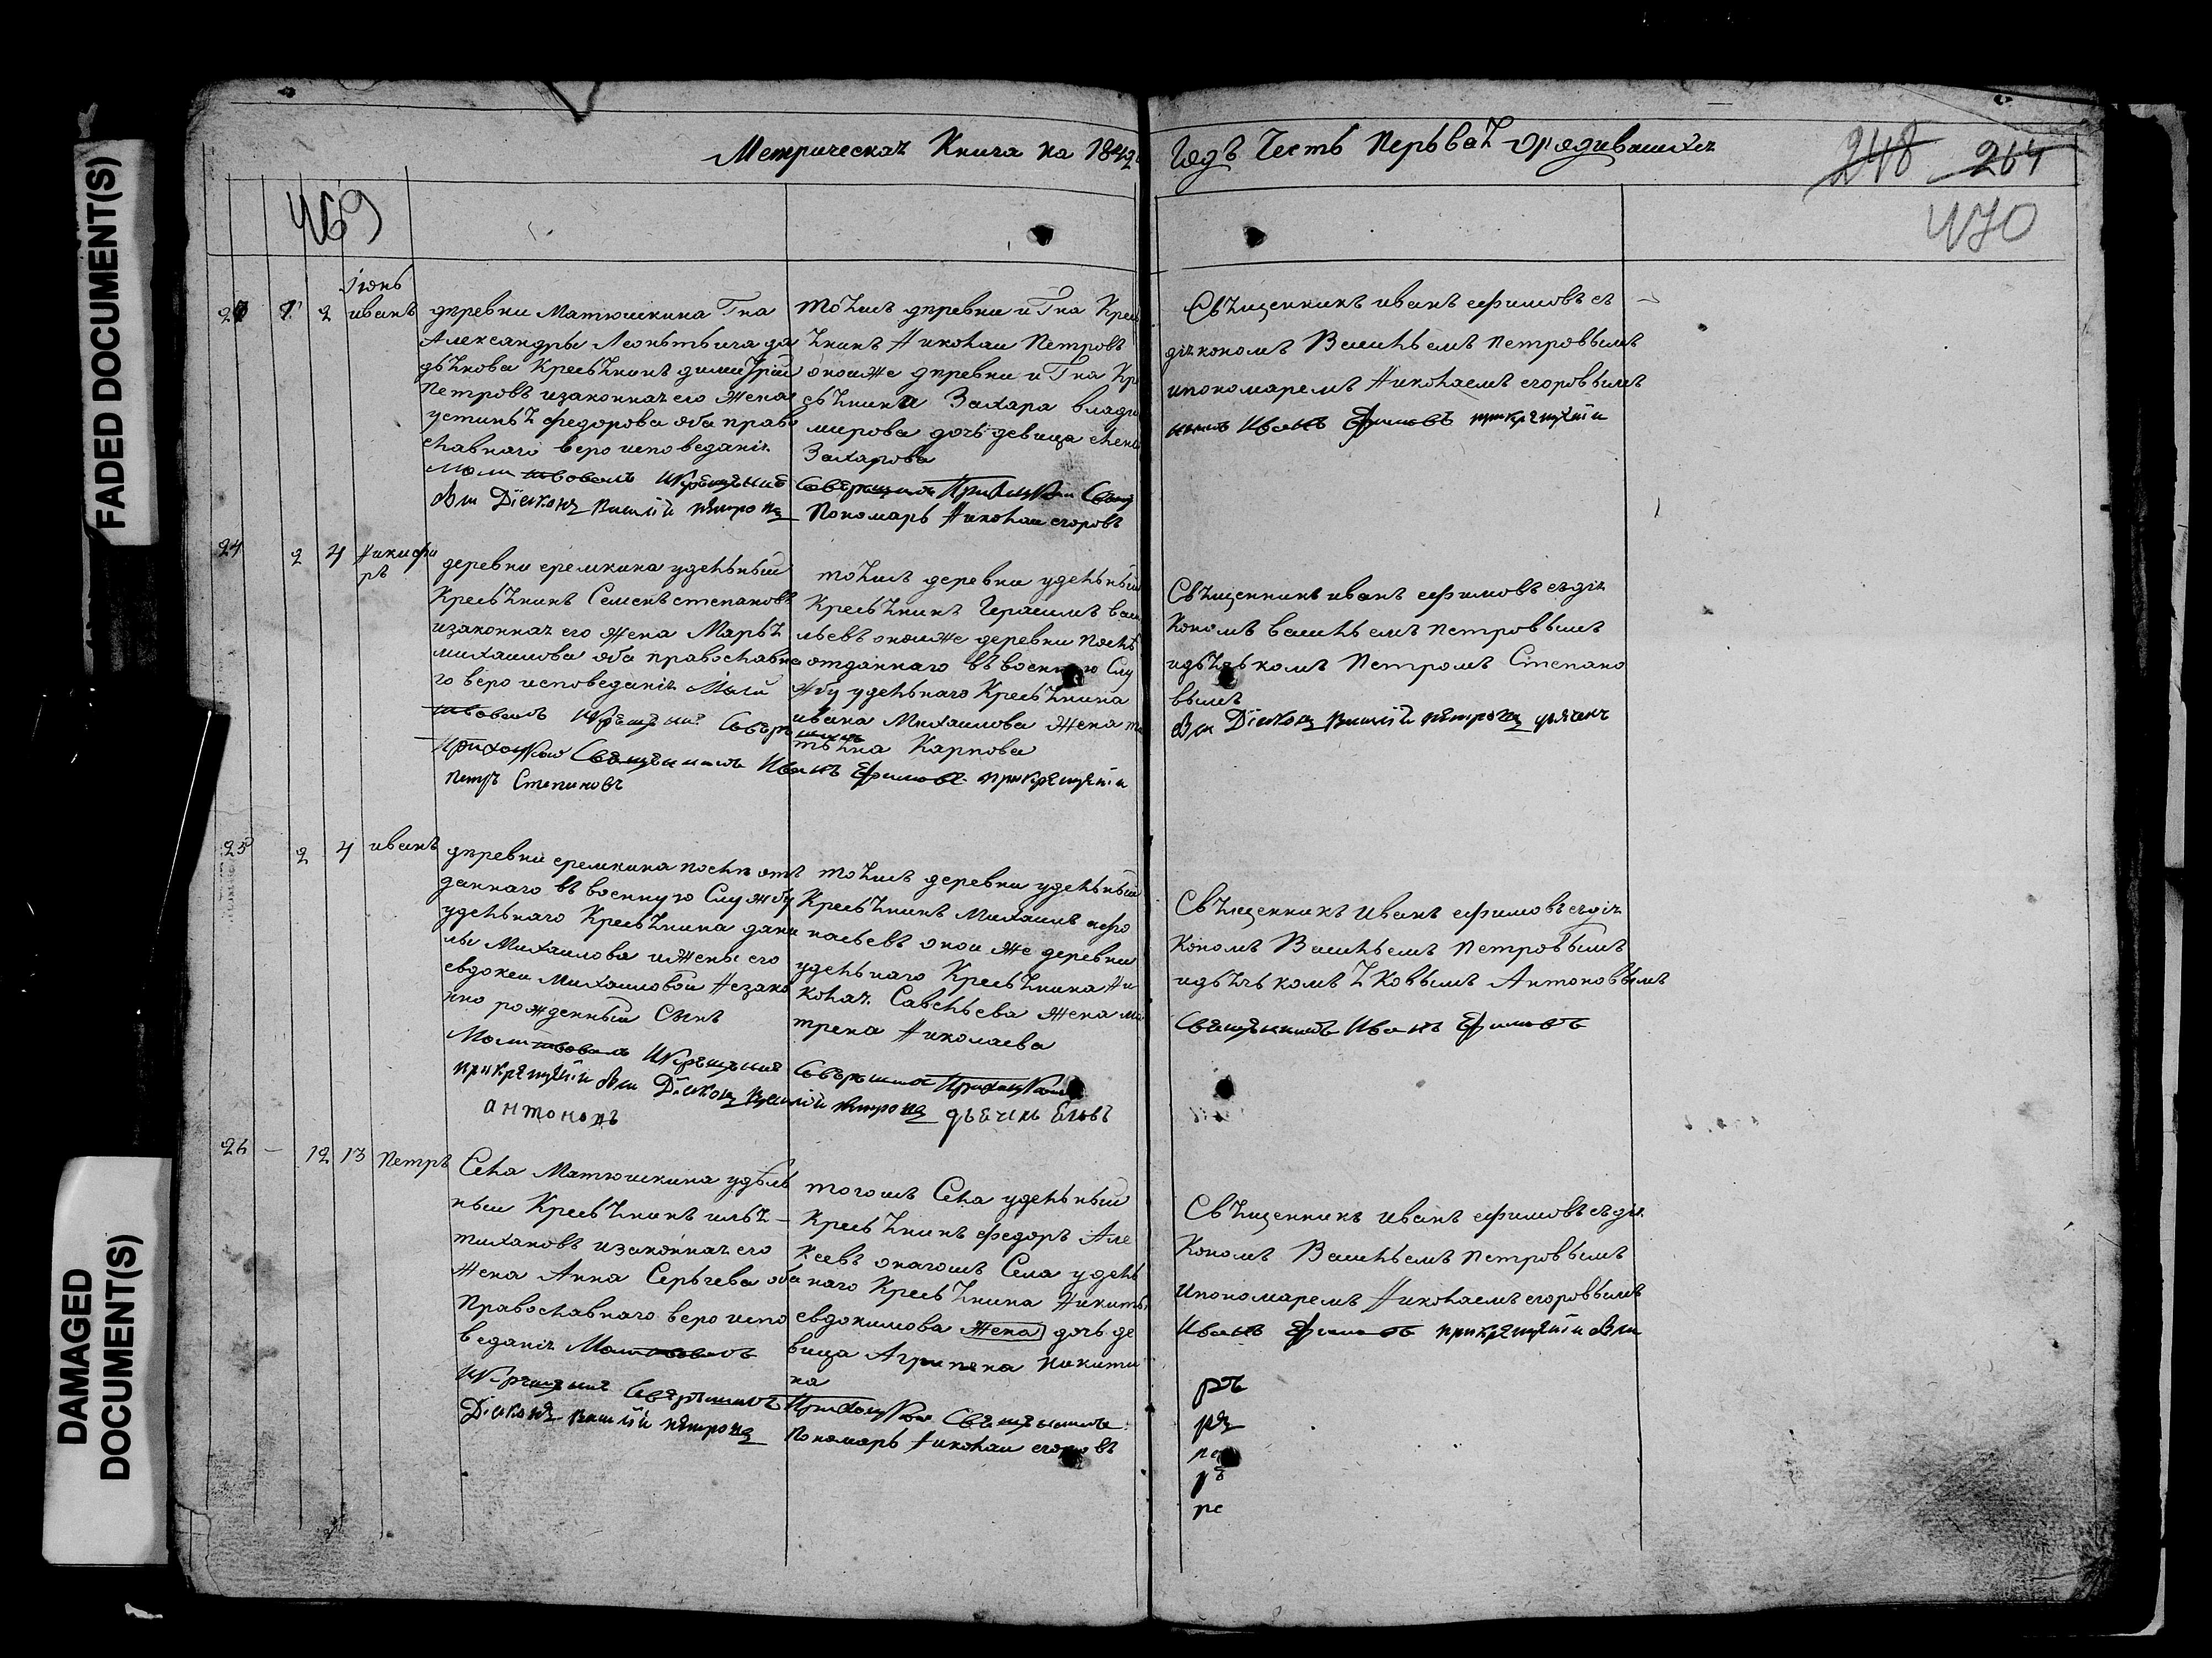 FADED DOCUMENT(S)
DAMAGED DOCUMENT(S)
Метрическая Книга на 1842 Годъ Честь Перьвая ородившихся
248 264
469
470
Iюнь
23 1 2 иванъ
дѣревни Матюшкина Гна
Александры Леонътьича да
дѣнкова Кресьянинъ димитрий
Петровъ изаконная его Жена
устинья федорова оба право
славнаго вероисповеданія
Молитвовалъ Икрещение Совершилъ Приходской Свящ
Дїаконъ Василїй Петровъ
Тояжъ дѣревни и Гна Крес
янинъ Николаи Петровъ
оноиже дѣревни и Гна Кр
сьянина Захара влади
мирова дочь девица елена
Захарова
Пономарь Николаи егоровъ
Священникъ иванъ ефимовъ съ
діякономъ Васильемъ Петровымъ
ипономаремъ Николаемъ егоровымъ
Иванъ Ефимовъ прикрещенїи
24 2 4 Никифоръ
деревни еремкина удельный
Кресьянинъ Семенъ степановъ
изаконная его Жена Марья
михаилова оба православна
го вероисповеданія Моли
твовалъ Икрещение Соверъшилъ
Приходской Священникъ Иванъ Ефимовъ прикрещенїи
Петръ Степановъ
тояжъ деревни удельный
Кресьянинъ Герасимъ васи
льевъ оноиже деревни Послѣ
отданнаго въ военную Слу
жбу удельнаго Кресьянина
ивана Михаилова Жена та
тьяна Карпова
Священникъ иванъ ефимовъ съдія
кономъ васильемъ Петровымъ
идьячькомъ Петромъ Степано
вымъ
Дїаконъ Василїй Петровъ дьячекъ
25 2 4 иванъ
дѣревни еремкина послѣ отъ
даннаго въ военную Службу
удельнаго Кресьянина дани
лы Михаилова иЖены его
евдокеи Михаиловой Незако
нно рожденный Сынъ
Молитвовалъ Икрещение Совершилъ Приходской
прикрещенїи Дїаконъ Василїй Петровъ дьечекъ
антоновъ
тояжъ деревни удельный
Кресьянинъ Михаилъ афо
насьевъ оноиже деревни
удельнаго Кресьянина Ни
колая Савельева Жена ма
трена Николаева
Священникъ Иванъ ефимовъ съдія
кономъ Васильемъ Петровымъ
идьячькомъ яковымъ Антоновымъ
Священникъ Иванъ Ефимовъ
26 — 12 13 Петръ
Села Матюшкина удѣль
ныи Кресьянинъ илья
тихановъ изаконная его
Жена Анна Серьгева оба
Православнаго вероиспо
веданія Молитвовалъ
Икрещение Совершилъ Приходской Священникъ
Дїаконъ Василїй Петровъ
тогожъ Села удельныи
Кресьянинъ федоръ Але
ксеевъ онагожъ Села удель
наго Кресьянина Никиты
евдокимова Жена дочь де
вица Агрипена Никити
на
Пономарь Николаи егоровъ
Священникъ иванъ ефимовъ съдія
кономъ Васильемъ Петровымъ
Ипономаремъ Николаемъ егоровымъ
Иванъ Ефимовъ прикрещенїи